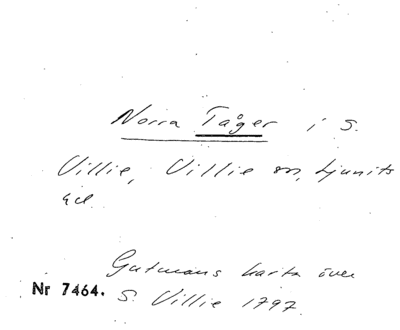 Norra Tåger i S.
Villie, Villie sn, Ljunits
hd.
Gutmans karta över
Nr 7464. S. Villie 1797.